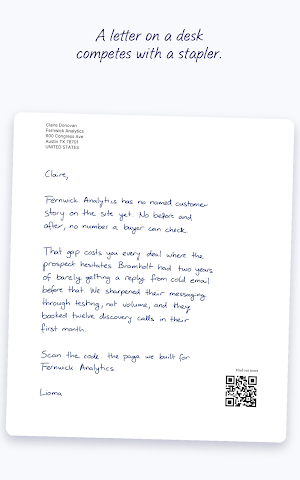 A letter on a desk
competes with a stapler.
Claire Donovan
Fernwick Analytics
600 Congress Ave
Austin TX 78701
UNITED STATES
Claire,
Fernwick Analytics has no named customer
story on the site yet. No before and
after, no number a buyer can check.
That gap costs you every deal where the
prospect hesitates. Bramholt had two years
of barely getting a reply from cold email
before that. We sharpened their messaging
through testing, not volume, and they
booked twelve discovery calls in their
first month.
Scan the code: the page we built for
Fernwick Analytics
Find out more
Lioma